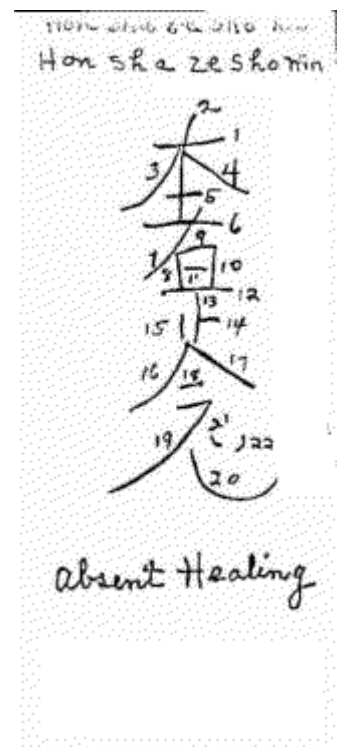 Hon sha ze sho nin
2
1
3 4
5
6
9
7 8 11 10
13 12
15 14
16 18 17
21
19 22
20
absent Healing